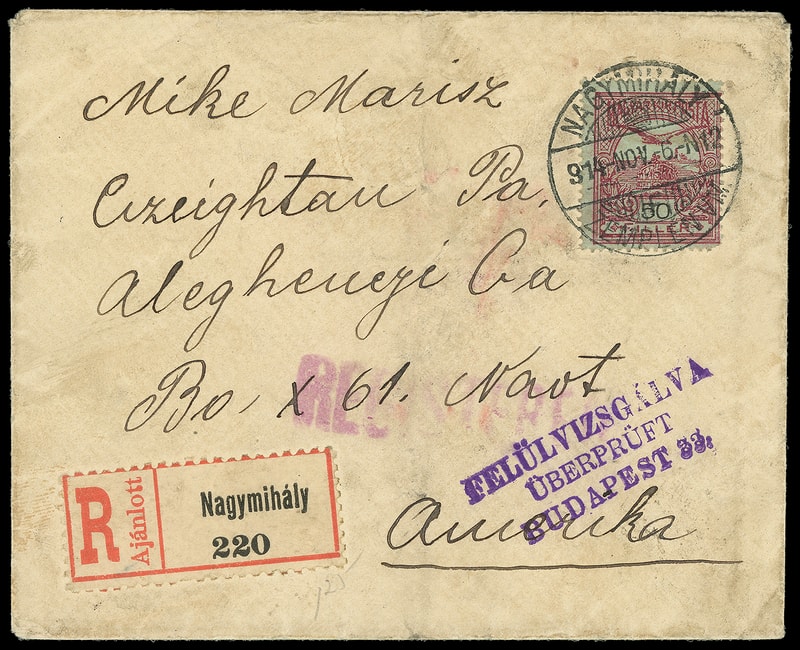 Mike Marisz
Creightan Pa.
Aleghenezi Ca
Bo x 61. Navt
Amerika
NAGYMIHÁLY
914 NOV. -6.-N12
ZEMPLÉN VM.
MAGYAR KIR. POSTA
50
FILLÉR
FELÜLVIZSGÁLVA
ÜBERPRÜFT
BUDAPEST 33.
R
Ajánlott
Nagymihály
220